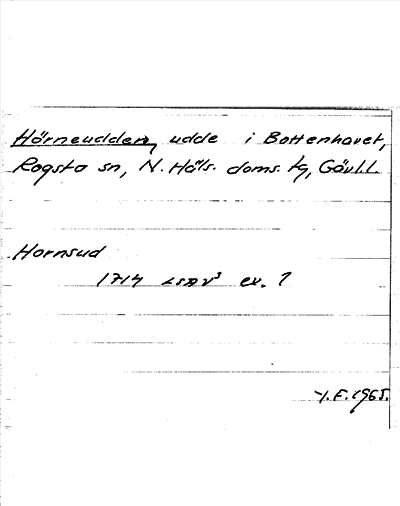 Hörneudden, udde i Bottenhavet,
Rogsta sn, N. Häls. doms. tg, Gävl.l.
Hornsud
1714 LSA V³ ex. 1
Y.F. 1965.